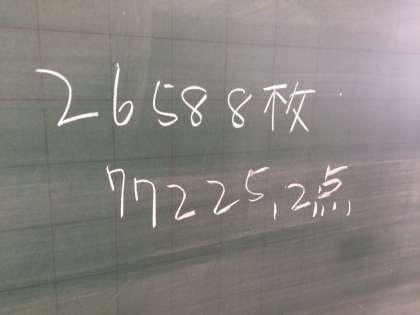 26588枚
77225.2点